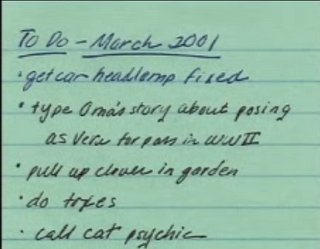 To Do - March 2001
· get car headlamp fixed
· type Oma's story about posing
as Vera for pass in WWII
· pull up clover in garden
· do taxes
· call cat psychic